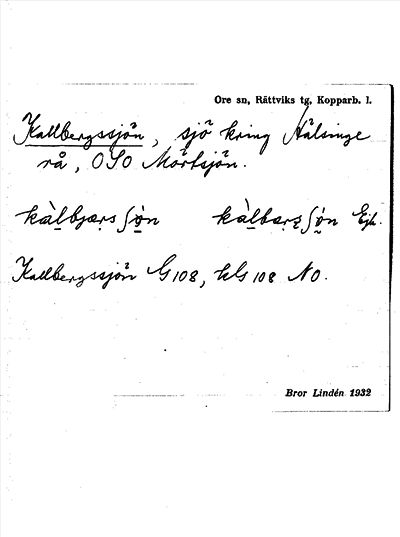 Ore sn, Rättviks tg, Kopparb. l.
Kallbergssjön, sjö kring Hälsinge
rå, OSO Mörtsjön.
kàlbjærs ʃön kàlbærs ʃön Ejh.
Kallbergssjön G 108, kls 108 NO.
Bror Lindén 1932